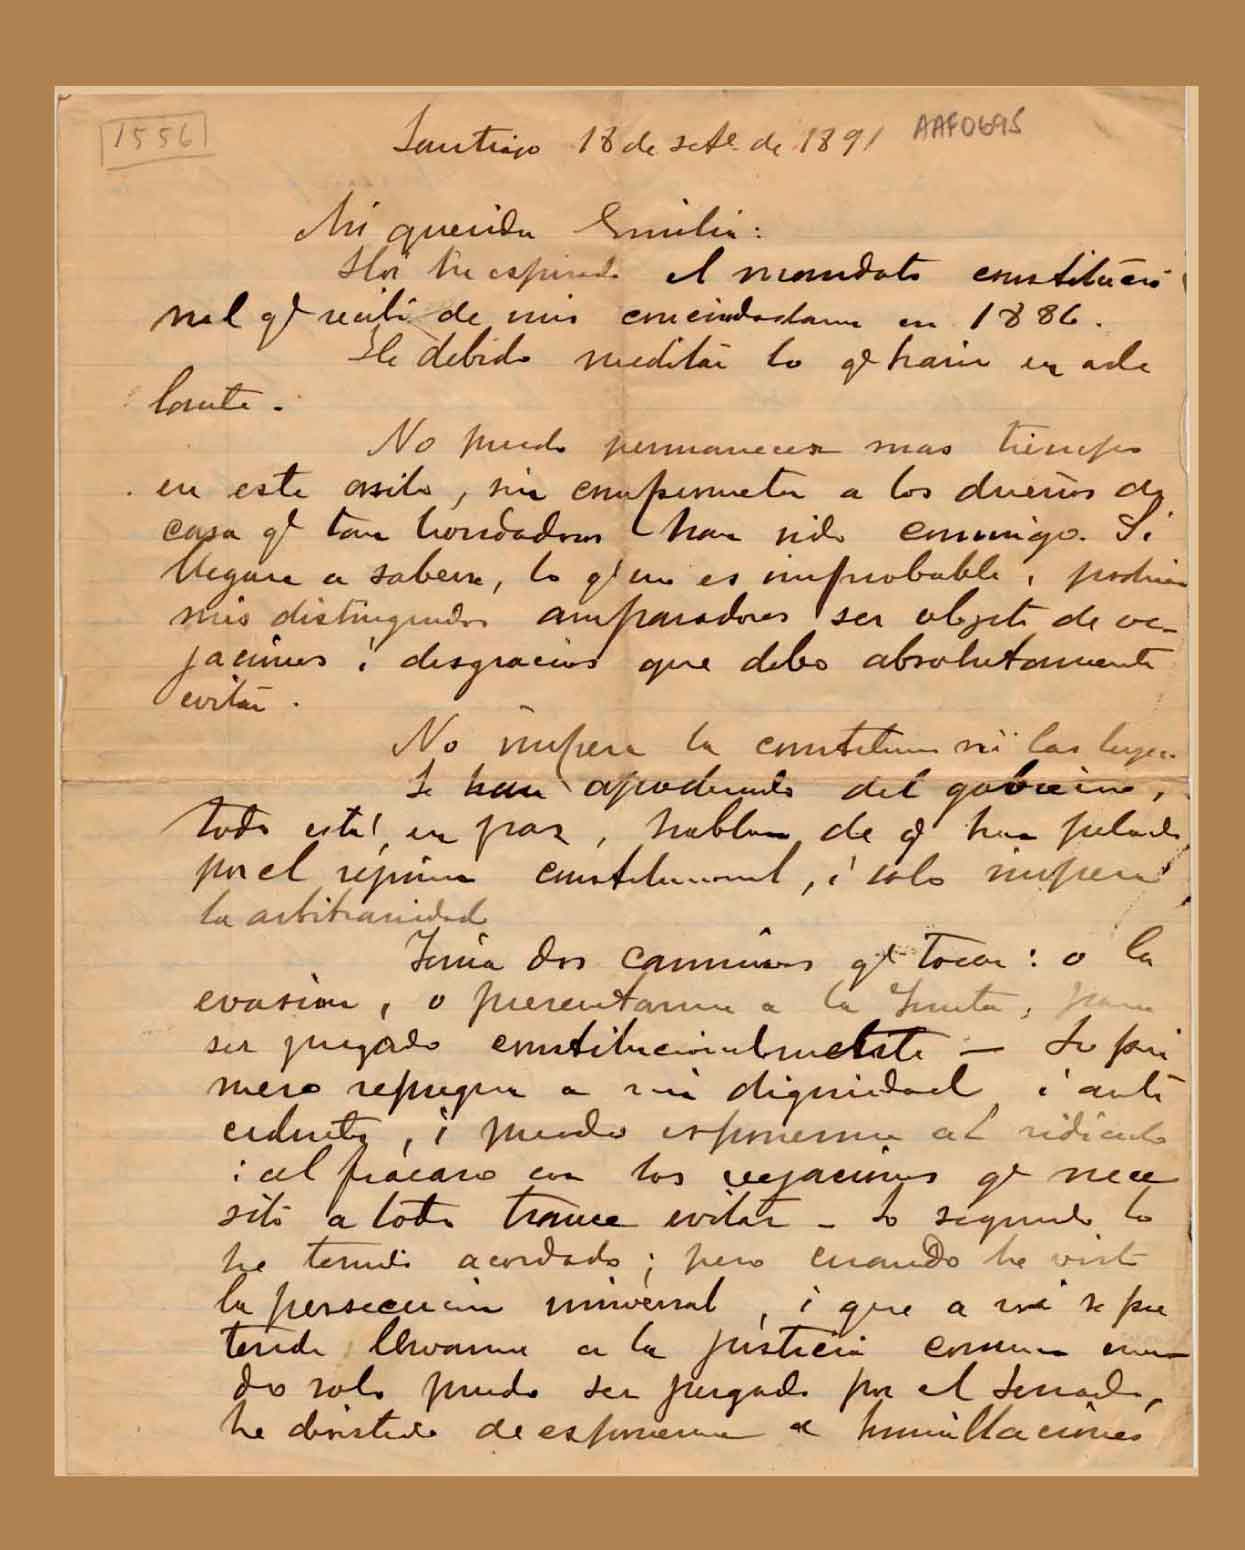 1556
Santiago 18 de sete de 1891 AAF0695
Mi querida Emilia:
Hoi ha espirado el mandato constitucio
nal qe recibí de mis conciudadanos en 1886.
He debido meditar lo qe haria en ade
lante.
No puedo permanecer mas tiempo
en este asilo, sin comprometer a los dueños de
casa qe tan bondadosos han sido conmigo. Si
llegara a saberse, lo qe no es improbable, podrian
mis distinguidos amparadores ser objeto de ve-
jaciones i desgracias que debo absolutamente
evitar.
No impera la constitucion ni las leyes.
Se han apoderado del gobierno,
todo está en paz, hablan de qe han peleado
por el réjimen constitucional, i solo impera
la arbitrariedad
Tenia dos caminos qe tocar: o la
evasion, o presentarme a la Junta, para
ser juzgado constitucionalmente — Lo pri
mero repugna a mi dignidad i ante
cedentes, i puedo esponerme al ridículo
i al fracaso con las vejaciones qe nece
sito a todo trance evitar — Lo segundo lo
he tenido acordado; pero cuando he visto
la persecucion universal, i que a mi se pre
tende llevarme a la justicia comun cuan-
do solo puedo ser juzgado por el Senado,
he desistido de esponerme a humillaciones